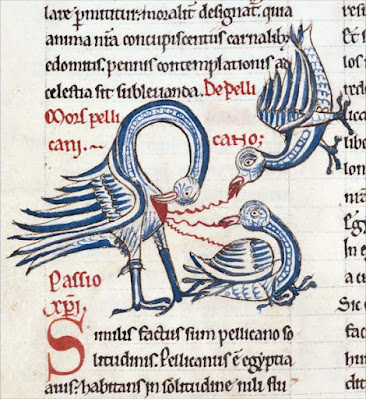 lare p̄mittitur: moralit̄ designat᷑. quia
anima nr̄a concupiscentiis carnalib;
edomitis, pennis contemplationis ad
celestia sit subleuanda. De pelli
Mors pelli
cani. cano;
Passio
xp̄i
Similis factus sum pellicano so
litudinis. Pellicanus ē egyptia
auis: habitans in solitudine nili flu
resi
Et s
libe
In e
Sic